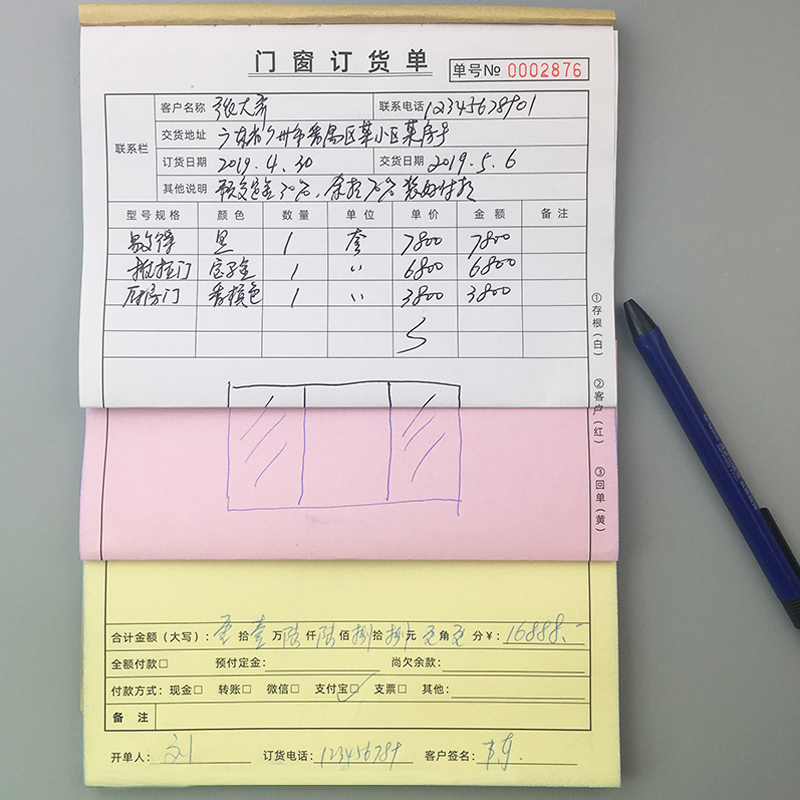 门窗订货单 单号№ 0002876
联系栏
客户名称 张大齐 联系电话 12345678901
交货地址 广东省广州市番禺区某小区某房号
订货日期 2019.4.30 交货日期 2019.5.6
其他说明 预交定金30%,余款70%装好付款
型号规格 颜色 数量 单位 单价 金额 备注
黑 1 套 7800 7800
推拉门 1 〃 6800 6800
厨房门 香槟色 1 〃 3800 3800
①存根(白)
②客户(红)
③回单(黄)
合计金额(大写): 零拾壹万陆仟陆佰捌拾捌元零角零分¥: 16888.-
全额付款□ 预付定金: 尚欠余款:
付款方式: 现金□ 转账□ 微信□ 支付宝□ 支票□ 其他:
备注
开单人: 刘 订货电话: 123456789 客户签名: